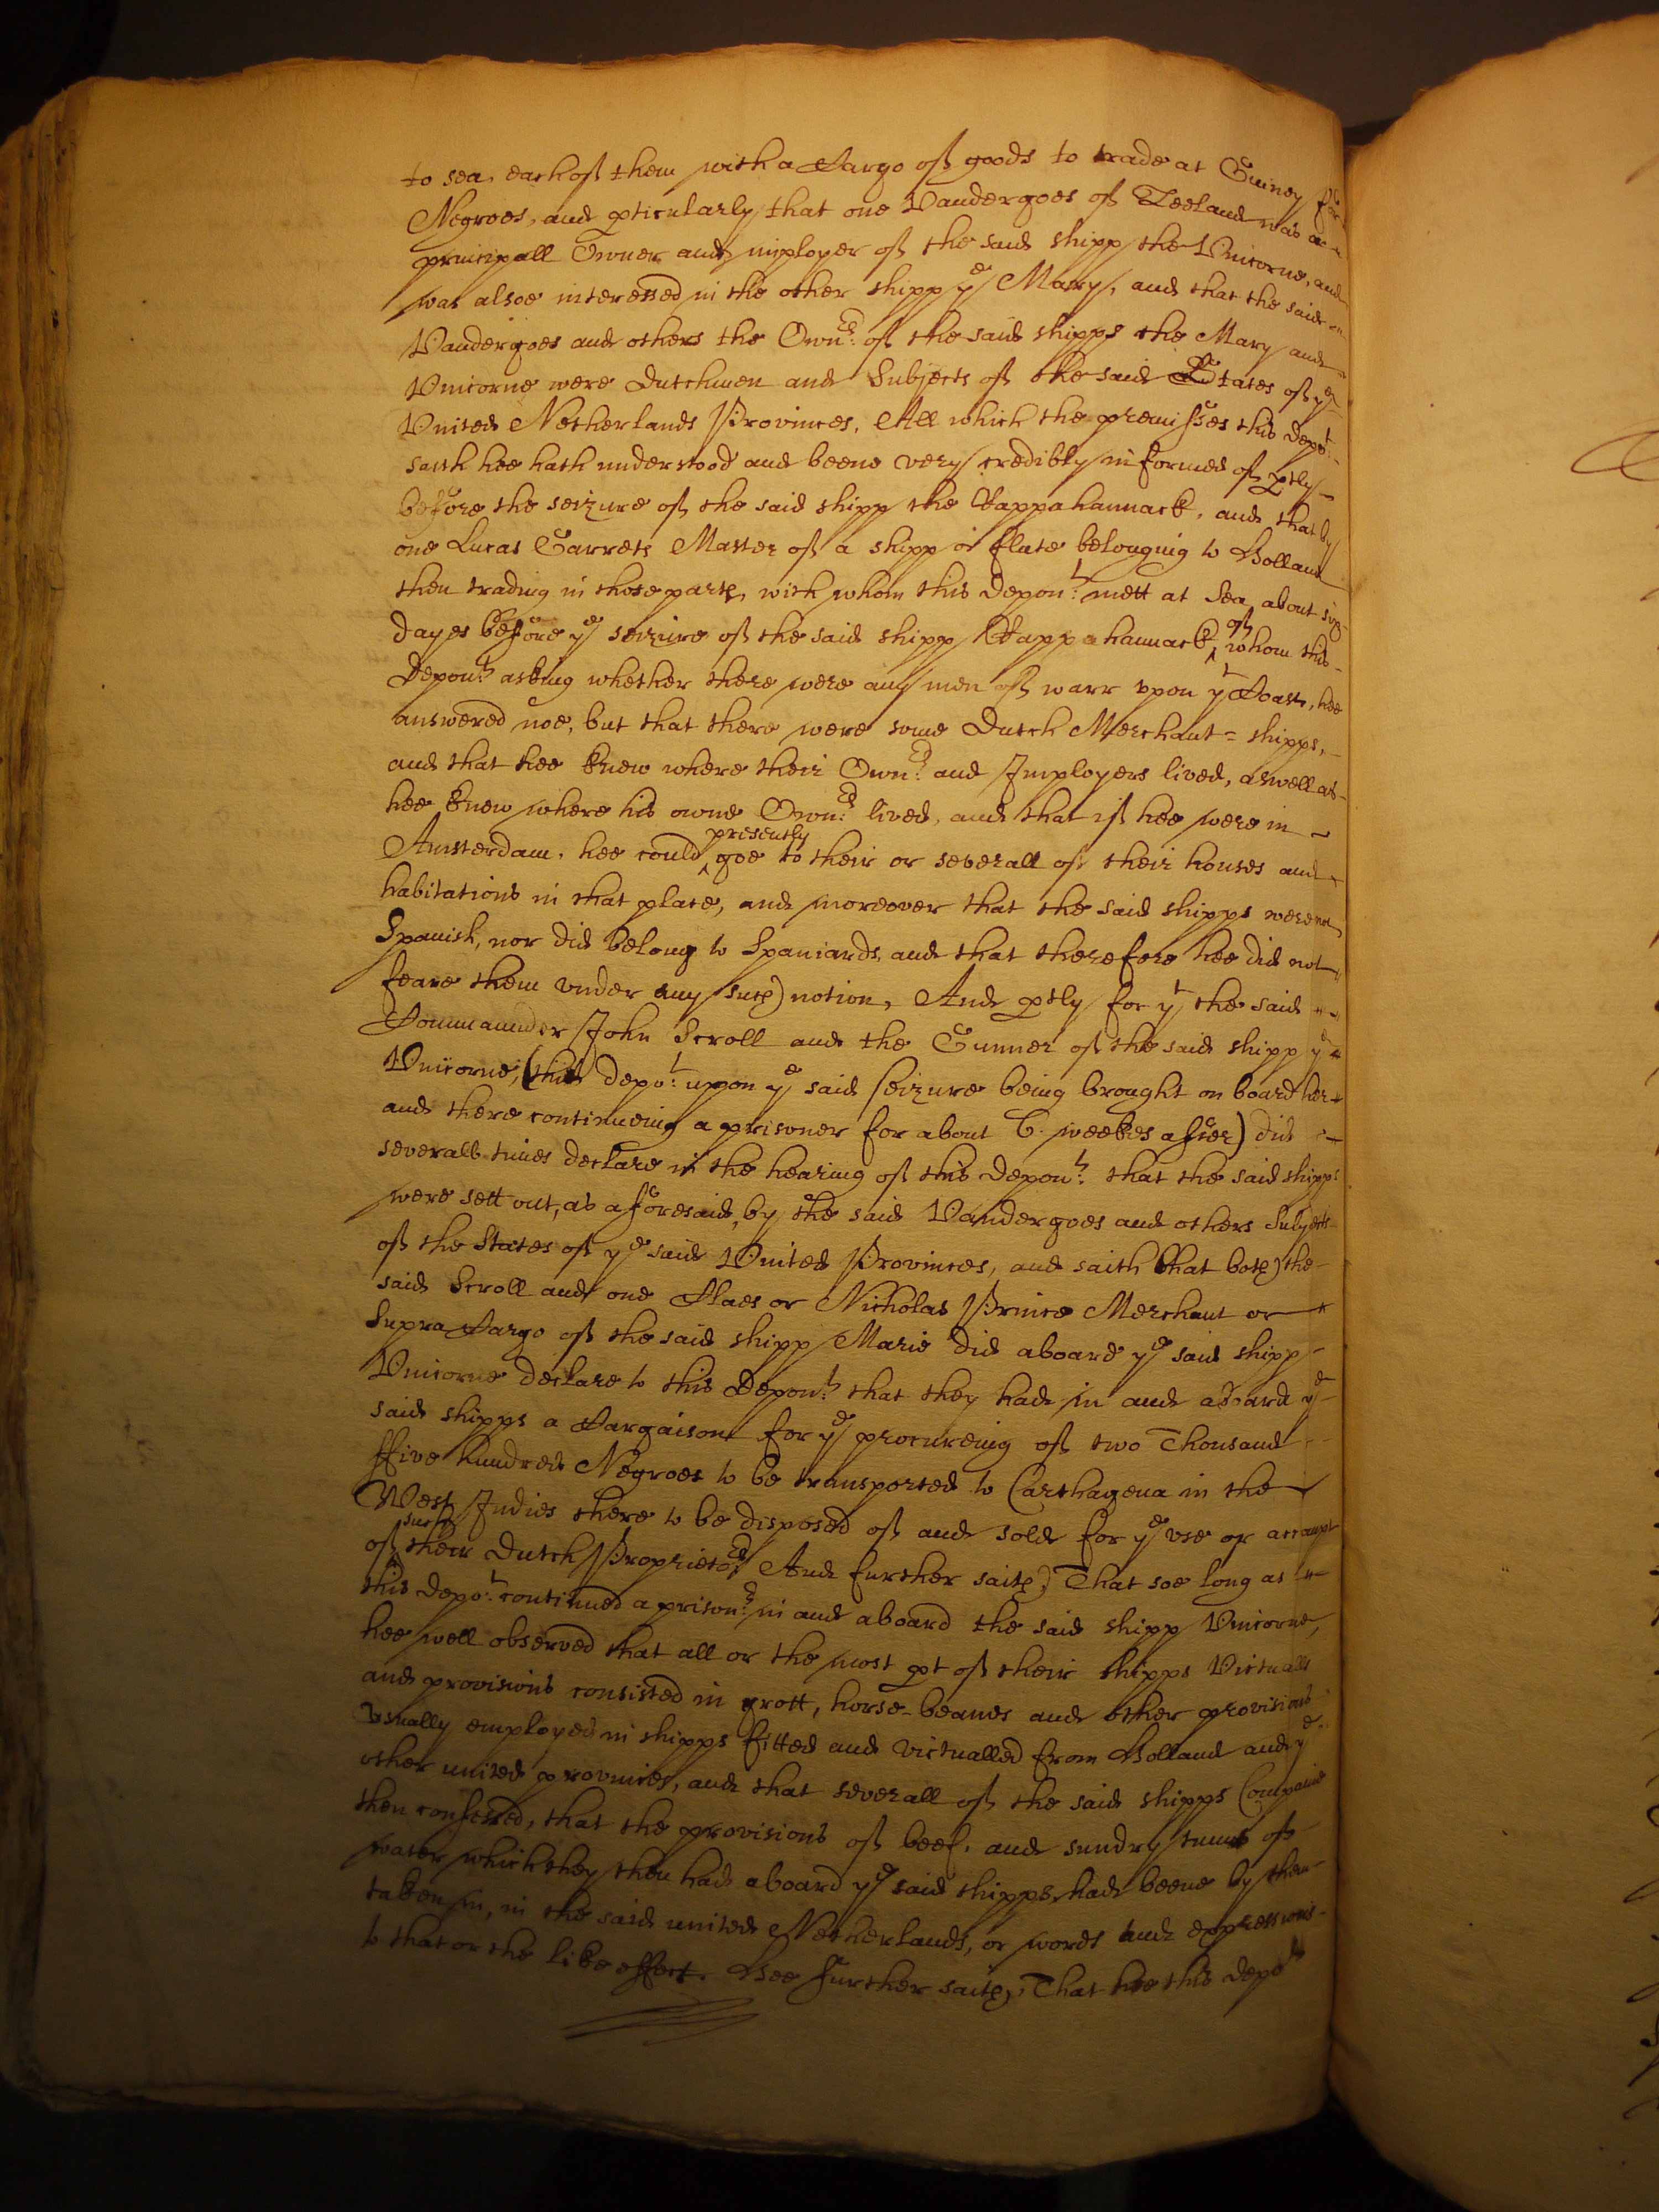 to sea, each of them with a Cargo of goods to trade at Guiney for
Negroes, and pticularly that one Vandergoes of Zeeland was a
principall Owner and imployer of the said shipp the Unicorne, and
was alsoe interessed in the other shipp ye Mary, and that the said
Vandergoes and others the Ownrs: of the said shipps the Mary and
Unicorne were Dutchmen and Subjects of the said States of ye
United Netherlands Provinces, All which the premisses this Depot:
saith hee hath understood and beene very credibly informed of ptly
before the seizure of the said shipp the Rappahannack, and that by
one Lucas Garrets Master of a shipp or flute belonging to Holland
then trading in those parts, with whom this Depont: mett at Sea about six
dayes before ye seizure of the said shipp Rappahannack, of whom this
Depont: asking whether there were any men of warr vpon yt Coast, hee
answered noe, but that there were some Dutch Merchant=shipps,
and that hee knew where their Ownrs: and Imployers lived, aswell as
hee knew where his owne Ownrs: lived, and that if hee were in
Amsterdam, hee could presently goe to their or severall of their houses and
habitations in that place, and moreover that the said shipps were not
Spanish, nor did belong to Spaniards, and that therefore hee did not
feare them vnder any such notion, And ptly for yt the said
Commaunder John Scroll and the Gunner of the said shipp ye
Unicorne, (this depot: uppon ye said seizure being brought on board her
and there continueing a prisoner for about 6. weekes after) did
severall times declare in the hearing of this Depont: that the said shipps
were sett out, as aforesaid, by the said Vandergoes and others Subjects
of the States of ye said United Provinces, and saith that both the
said Scroll and one Claes or Nicholas Prince Merchant or
Supra Cargo of the said shipp Marie did aboard ye said shipp
Unicorne declare to this Depont: that they had in and aboard ye
said shipps a Cargaison for ye procureing of two Thousand
ffive hundred Negroes to be transported to Carthagena in the
West Indies there to be disposed of and sold for ye vse or accompt
of such their Dutch Proprietors, And further saith, That soe long as
this Depot: continued a prisonr: in and aboard the said shipp Unicorne,
hee well observed that all or the most pt of their shipps Victualls
and provisions consisted in grott, horse-beanes and other provisions
vsually employed in shipps fitted and victualled from Holland and ye
other united provinces, and that severall of the said shipps Companie
then confessed, that the provisions of beef, and sundry tunns of
water which they then had aboard ye said shipps had beene by them
taken in, in the said united Netherlands, or words and expressions
to that or the like effect. Hee further saith, That hee this depot